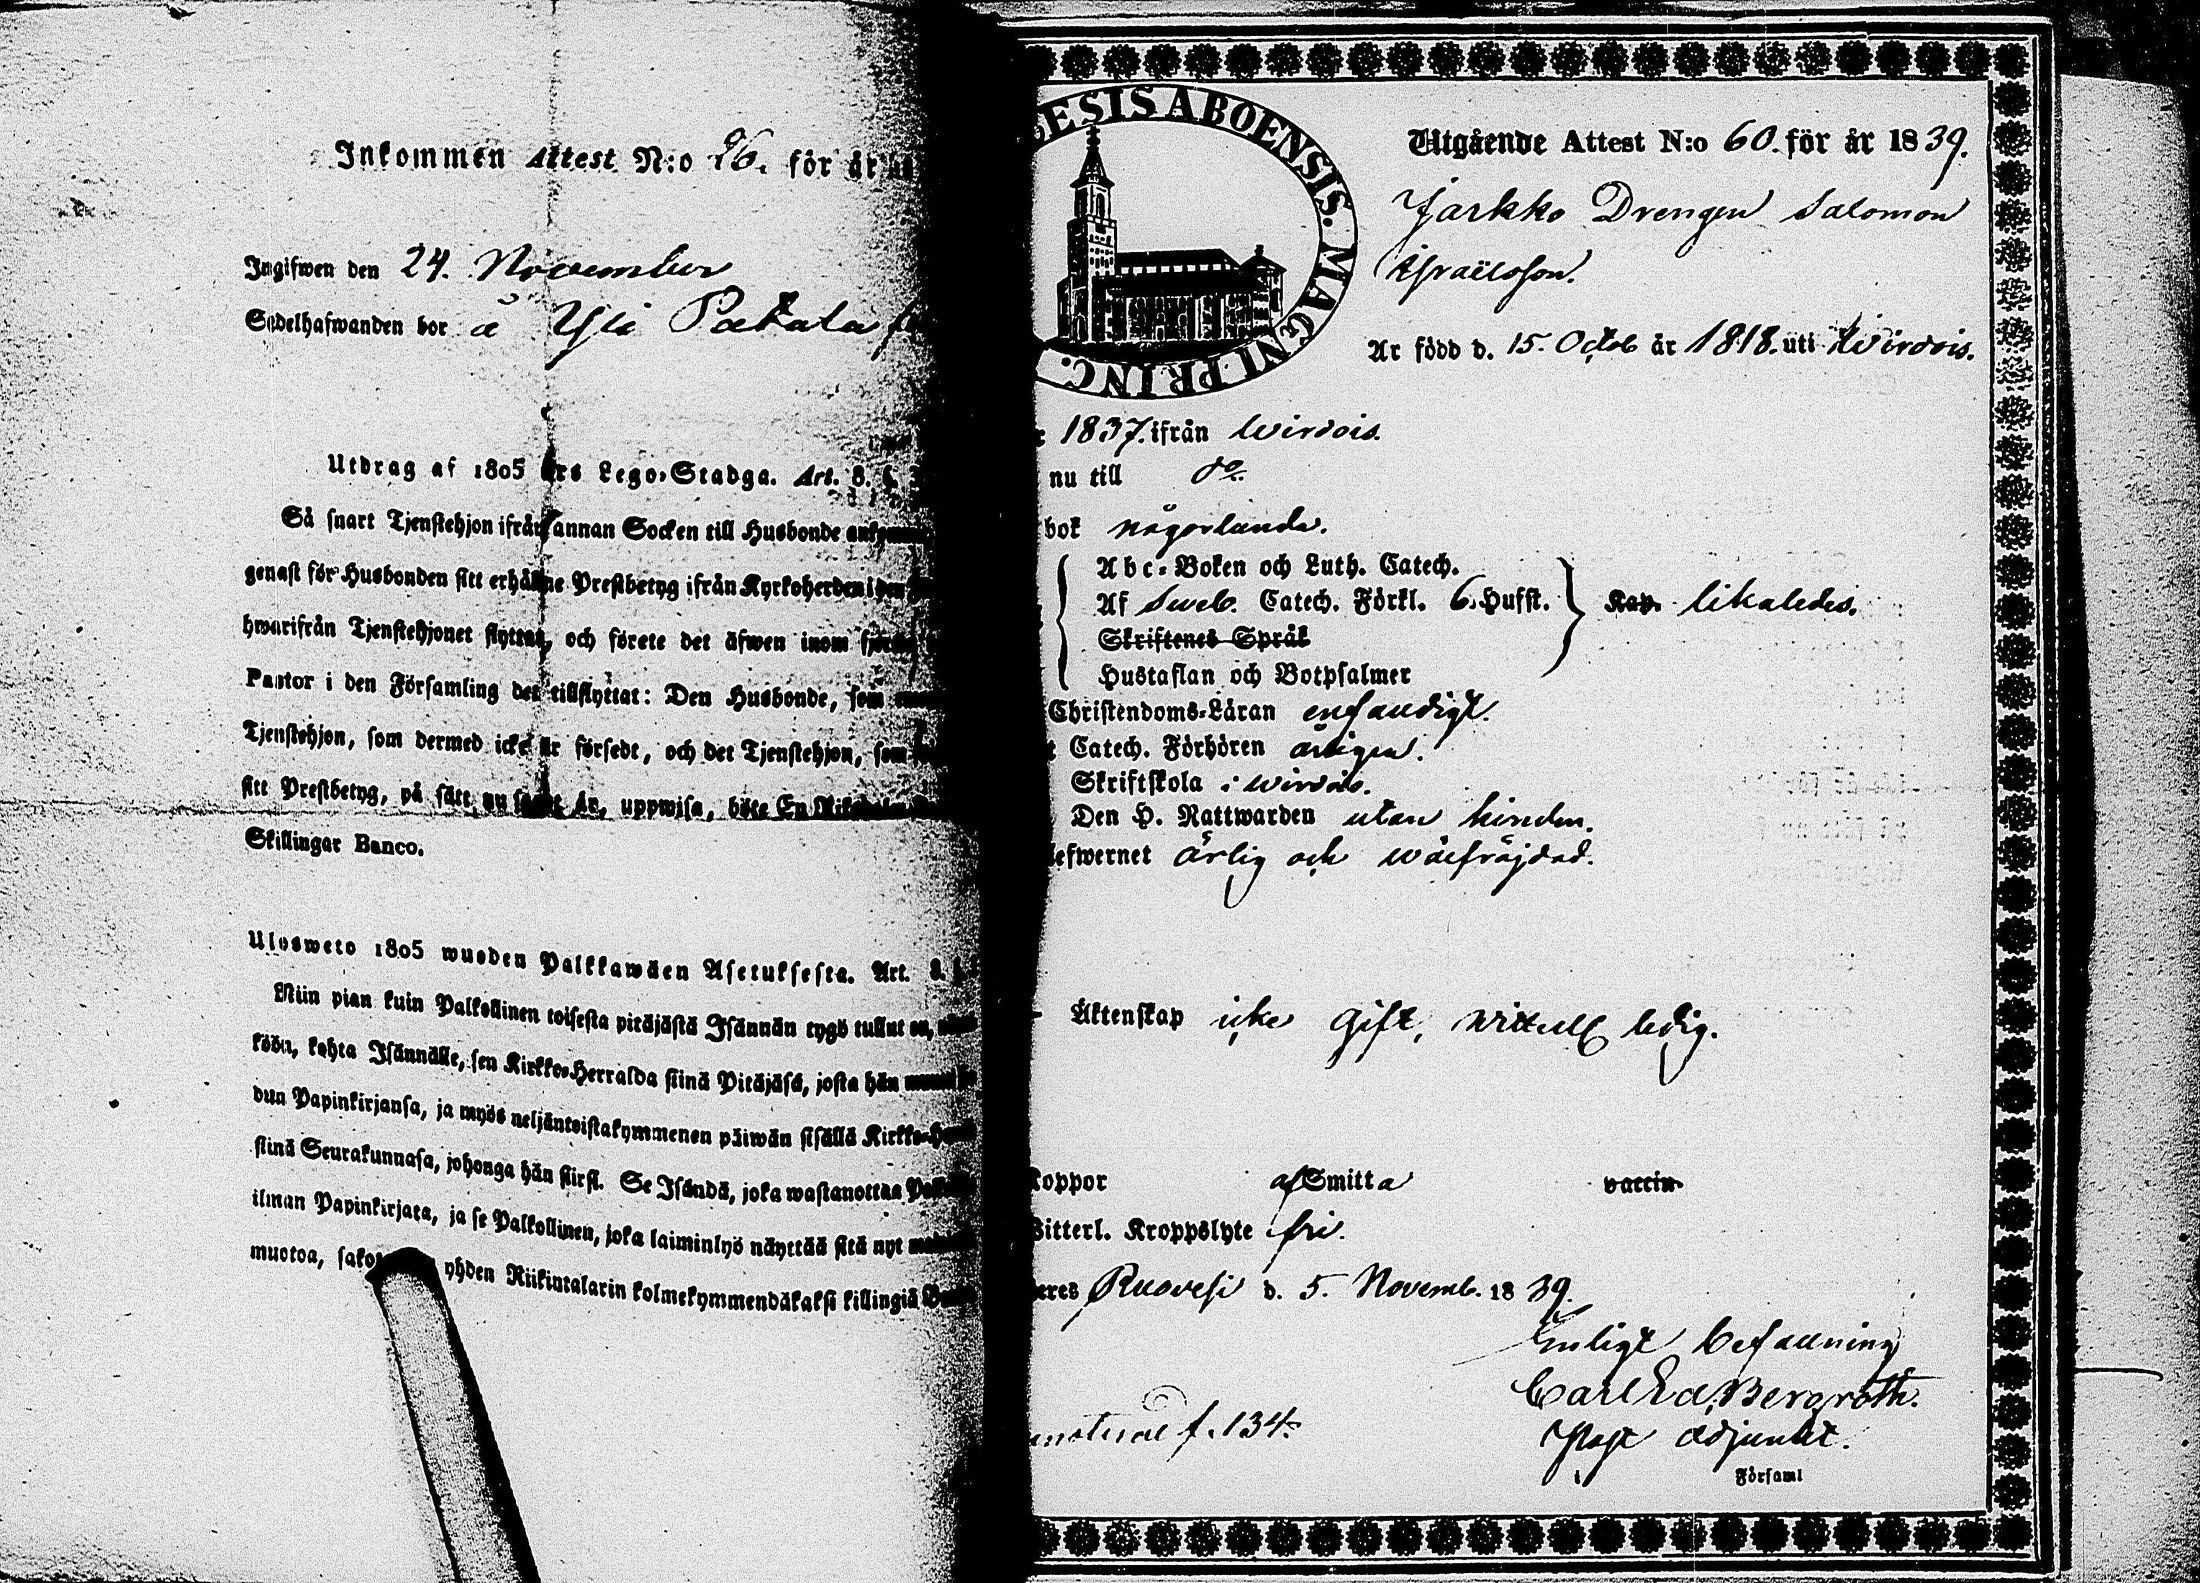 Inkommen Attest N:o 26. för år
Ingifwen den 24. November
Sedelhafwanden bor å Yli Pakala
Utdrag af 1805 års Lego-Stadga. Art. 8. §.
Så snart Tjenstehjon ifrån annan Socken till Husbonde
genast för Husbonden sitt erhållne Prestbetyg ifrån Kyrkoherden i den
hwarifrån Tjenstehjonet flyttat, och förete det äfwen inom
Pastor i den Församling det tillflyttat: Den Husbonde, som
Tjenstehjon, som dermed icke är försedt, och det Tjenstehjon, som
sitt Prestbetyg, på sätt nu sagt är, uppwisa, böte En
Skillingar Banco.
Ulosweto 1805 wuoden Palkkawäen Asetuksesta. Art. 8. §.
Niin pian kuin Palkollinen toisesta pitäjästä Isännän tygö tullut on,
köön, kohta Isännälle, sen Kirkko-Herralda siinä Pitäjäsä, josta hän
dun Papinkirjansa, ja myös neljäntoistakymmenen päiwän sisällä Kirkko-
siinä Seurakunnasa, johonga hän siirsi. Se Isändä, joka wastanottaa
ilman Papinkirjata, ja se Palkollinen, joka laiminlyö näyttää sitä nyt
muotoa, yhden Riikintalarin kolmekymmendäkaksi killingiä
ESIS ABOENSIS. MAGNI PRINC.
Utgående Attest N:o 60. för år 1839.
Jarkko Drengen Salomon
Israëlsson.
Är född d. 15. Octob år 1818. uti Wirdois.
1837. ifrån Wirdois.
nu till do.
bok någorlunda.
Abc-Boken och Luth. Catech.
Af Sweb. Catech. Förkl. 6. Hufst. Kap. likaledes.
Skriftenes Språk
Hustaflan och Botpsalmer
Christendoms-Läran enfaudigt.
Catech. Förhören årligen.
Skriftskola i Wirdois.
Den H. Nattwarden utan hinder.
lefwernet ärlig och wälfräjdad.
Äktenskap icke gift, witterl. ledig.
koppor af Smitta vaccin
Witterl. Kroppslyte fri.
Ruovesi d. 5. Novemb. 1839.
Enligt befallning
Carl Ed. Bergroth.
Past adjunkt.
Församl
f. 134.